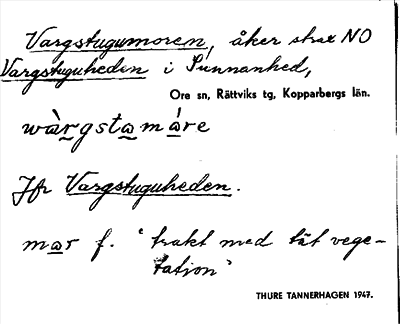 Vargstugumoren, åker strax NO
Vargstuguheden i Sunnanhed,
Ore sn, Rättviks tg, Kopparbergs län.
wàrgstamáre
Jfr Vargstuguheden.
mar f. 'trakt med tät vege-
tation'
THURE TANNERHAGEN 1947.